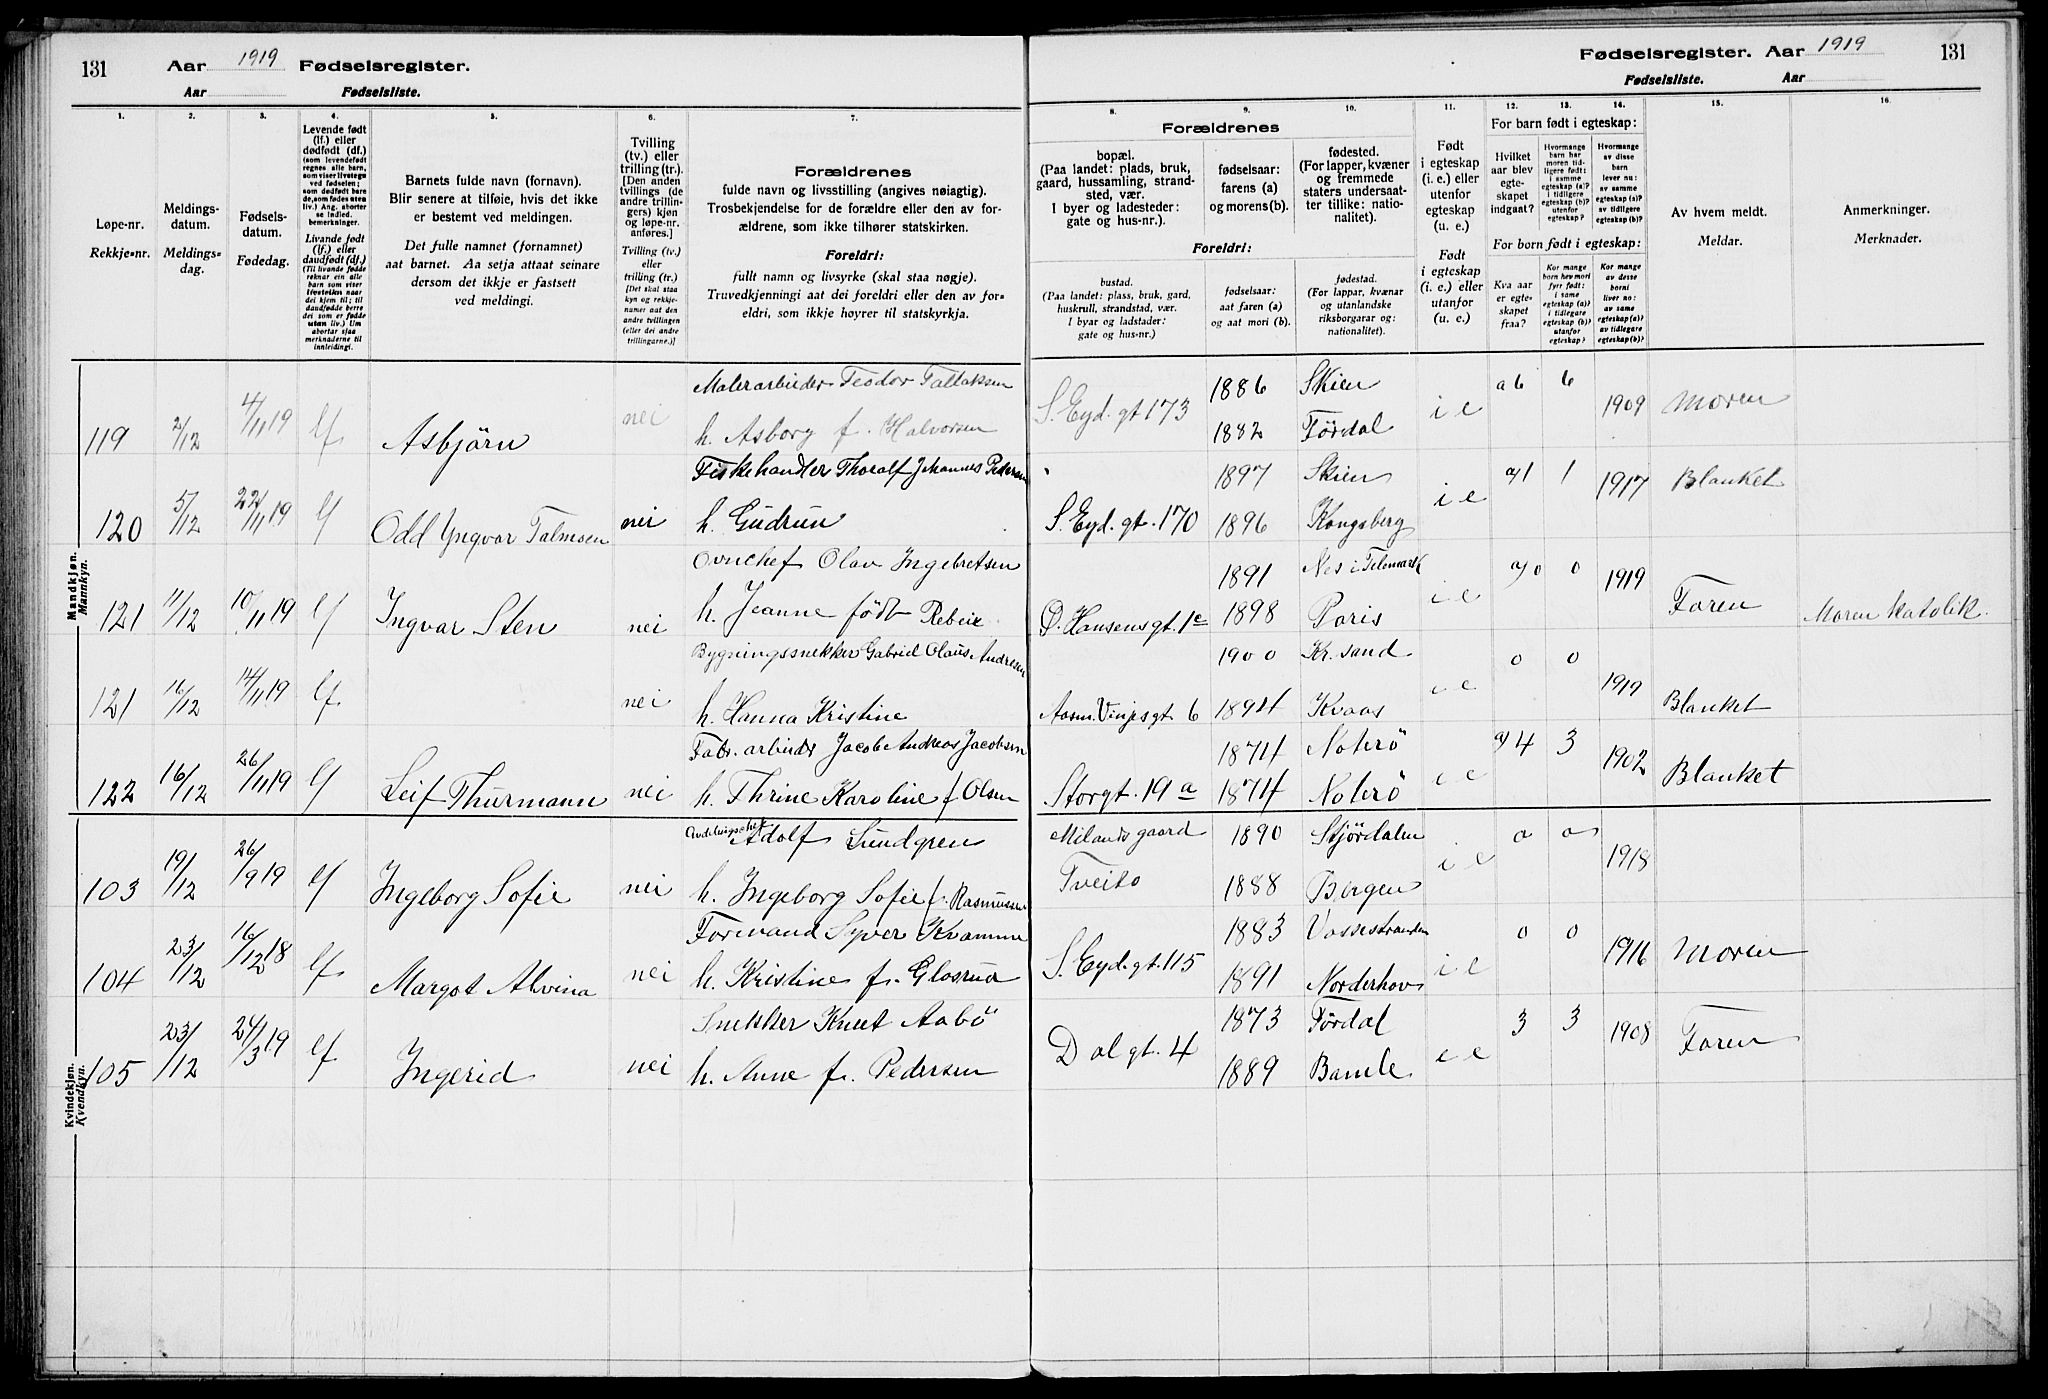 131 Aar 1919 Fødselsregister.
Aar Fødselsliste.
Fødselsregister. Aar 1919 131
Fødselsliste. Aar
1. 2. 3. 4. 5. 6. 7.
Løpe-nr.
Rekkje-nr.
Meldings-
datum.
Meldings-
dag.
Fødsels-
datum.
Fødedag.
Levende født
(lf.) eller
dødfødt (df.)
(som levendefødt
regnes alle barn,
som viser livstegn
ved fødselen;
som dødfødt bare
de, som fødes uten
liv.) Ang. aborter
se indled.
bemerkninger.
Livande født
(lf.) eller
daudfødt (df.)
(Til livande fødde
reknar ein alle
born som viser
livsteikn naar
dei kjem til; til
daudfødde berre
dei som er fødde
utan liv.) Um
abortar sjaa
merknaderne til
innleidingi.
Barnets fulde navn (fornavn).
Blir senere at tilføie, hvis det ikke
er bestemt ved meldingen.
Det fulle namnet (fornamnet)
aat barnet. Aa setja attaat seinare
dersom det ikkje er fastsett
ved meldingi.
Tvilling
(tv.) eller
trilling (tr.)
[Den anden
tvillings (de
andre trillin-
gers) kjøn
og løpe-nr.
anføres.]
Tvilling (tv.)
eller
trilling (tr.)
[Det skal staa
kyn og rekkje-
numer aat den
andre tvillingen
(eller dei andre
trillingarne.)]
Forældrenes
fulde navn og livsstilling (angives nøiagtig).
Trosbekjendelse for de forældre eller den av for-
ældrene, som ikke tilhører statskirken.
Foreldri:
fullt namn og livsyrke (skal staa nøgje).
Truvedkjenningi aat dei foreldri eller den av for-
eldri, som ikkje høyrer til statskyrkja.
8. 9. 10. 11. 12. 13. 14. 15. 16.
Forældrenes
bopæl.
(Paa landet: plads, bruk,
gaard, hussamling, strand-
sted, vær.
I byer og ladesteder:
gate og hus-nr.)
fødselsaar:
farens (a)
og morens (b).
fødested.
(For lapper, kvæner
og fremmede
staters undersaat-
ter tillike: natio-
nalitet).
Foreldri:
bustad.
(Paa landet: plass, bruk, gard,
huskrull, strandstad, vær.
I byar og ladstader:
gate og hus-nr.)
fødselsaar:
aat faren (a)
og aat mori (b).
fødestad.
(For lappar, kvænar
og utanlandske
riksborgarar og:
nationalitet).
Født
i egteskap
(i. e.) eller
utenfor
egteskap
(u. e.)
Født
i egteskap
(i. e.) eller
utanfor
(u. e.)
For barn født i egteskap:
Hvilket
aar blev
egte-
skapet
indgaat?
Hvormange
barn har
moren tid-
ligere født:
i samme
egteskap (a)?
i tidligere
egteskap (b)?
utenfor
egteskap?
Hvormange
av disse
barn
lever nu:
av samme
egteskap (a)?
av tidligere
egteskap (b)?
For born født i egteskap:
Kva aar
er egte-
skapet
fraa?
Kor mange
born hev mori
fyrr født:
i same
egteskap (a)?
i tidlegare
egteskap (b)?
utanfor
egteskap?
Kor mange
av desse
borni
liver no:
av same
egteskap (a)?
av tidlegare
egteskap (b)?
Av hvem meldt.
Meldar.
Anmerkninger.
Merknader.
Mandkjøn.
Mannkyn.
Malerarbeider Teodor Tallaksen 1886 Skien a6 6
119 2/12 4/11 19 lf Asbjörn nei h. Asborg f. Halvorsen S. Eyd. gt 173 1882 Fördal i e 1909 Moren
Fiskehandler Thoralf Johannes Pedersen 1897 Skien a/1 1
120 5/12 22/11 19 lf Odd Yngvar Talmoen nei h. Gudrun S. Eyd. gt. 170 1896 Kongsberg i e 1917 Blanket
Olav Ingebretsen 1891 Nes i Telemark a/0 0
121 11/12 10/11 19 lf Ingvar Sten nei h. Jeanne født Rebeix O. Hansens gt. 1e 1898 Paris i e 1919 Faren Moren katolik.
Bygningssnekker Gabriel Olaus Andresen 1900 Kr. sand 0 0
121 16/12 14/11 19 lf nei h. Hanna Kristine Aasm. Vinjes gt 6 1894 Kvaas i e 1919 Blanket
Fabr. arbeider Jacob Andreas Jacobsen 1874 Noterö a/4 3
122 16/12 26/11 19 lf Leif Thurmann nei h. Thrine Karoline f Olsen Storgt. 19 a 1874 Noterö i e 1902 Blanket
Kvindekjøn.
Kvendkyn.
Avdelingschef Adolf Sundgren Milands gaard 1890 Stjördalen 0 0
103 19/12 26/9 19 lf Ingeborg Sofie nei h. Ingeborg Sofie f. Rasmussen Tveito 1888 Bergen i e 1918
Formand Syver Kvamme 1883 Vossestranden 0 0
104 23/12 16/12 18 lf Margot Alvina nei h. Kristine f. Glosrud S. Eyd. gt. 115 1891 Norderhov i e 1916 Moren
Snekker Knut Aabö 1873 Fördal 3 3
105 23/12 24/3 19 lf Ingerid nei h. Anne f. Pedersen Dal gt. 4 1889 Bamle i e 1908 Faren